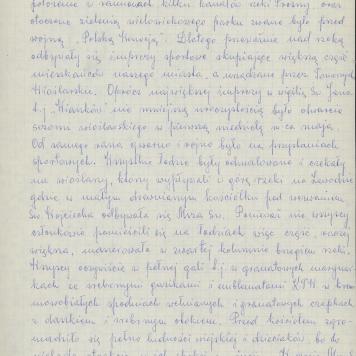 położone w ramionach kilku kanałów rzeki Prosny, oraz
otoczone zielenią wielowiekowego parku zwane było przed
wojną "Polską Wenecją". Dlatego przeważnie nad rzeką
odbywały się imprezy sportowe skupiające większą część
mieszkańców naszego miasta, a urządzane przez Towarzyst.
Wioślarskie. Oprócz największej imprezy w wigilię Św. Jana
t.j. "Wianków" nie mniejszą uroczystością było otwarcie
sezonu wioślarskiego w pierwszą niedzielę m-ca maja.
Od samego rana gwarno i rojno było na przystaniach
sportowych. Wszystkie łodzie były odmalowane i czekały
na wioślarzy, którzy wypływali w górę rzeki na Zawodzie
gdzie w małym drewnianym kościółku pod wezwaniem
Św. Wojciecha odbywała się Msza Św. Ponieważ nie wszyscy
członkowie pomieścili się na łodziach więc część, raczej
większa, maszerowała w zwartej kolumnie brzegiem rzeki.
Wszyscy oczywiście w pełnej gali t.j. w granatowych marynar-
kach ze srebrnymi guzikami i emblematami KTW w
nowobiałych spodniach wełnianych i granatowych czapkach
z daszkiem i srebrnym otokiem. Przed kościołem zgro-
madziło się pełno ludności miejskiej i dzieciaków, bo do